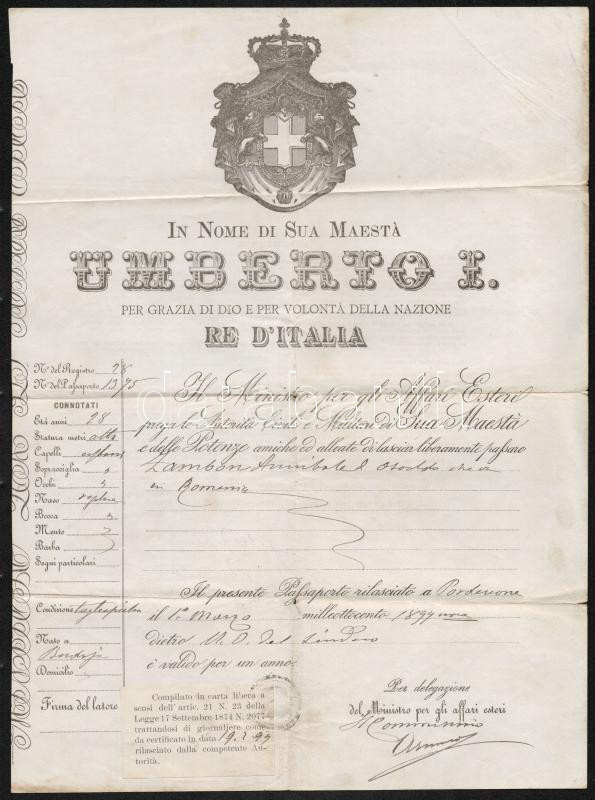 In Nome di Sua Maestà
UMBERTO I.
PER GRAZIA DI DIO E PER VOLONTÀ DELLA NAZIONE
RE D'ITALIA
N.º del Registro 28
N.º del Passaporto 13/95
CONNOTATI
Età anni 28
Statura metri alta
Capelli
Sopracciglia
Occhi
Naso
Bocca
Mento
Barba
Segni particolari
Condizione
Nato a
Domicilio
Firma del latore
Il Ministro per gli Affari Esteri
prega le Autorità Civili e Militari di Sua Maestà
e delle Potenze amiche ed alleate di lasciar liberamente passare
Zambon Annibale d' Osvaldo che va
in Romania
Il presente Passaporto rilasciato a Pordenone
il 1º Marzo milleottocento 1899
dietro N. O. del Sindaco
è valido per un anno
Compilato in carta libera a
sensi dell'artic. 21 N. 23 della
Legge 17 Settembre 1874 N. 2077
trattandosi di giornaliere come
da certificato in data 19.2.99
rilasciato dalla competente Au-
torità.
Per delegazione
del Ministro per gli affari esteri
darabanth